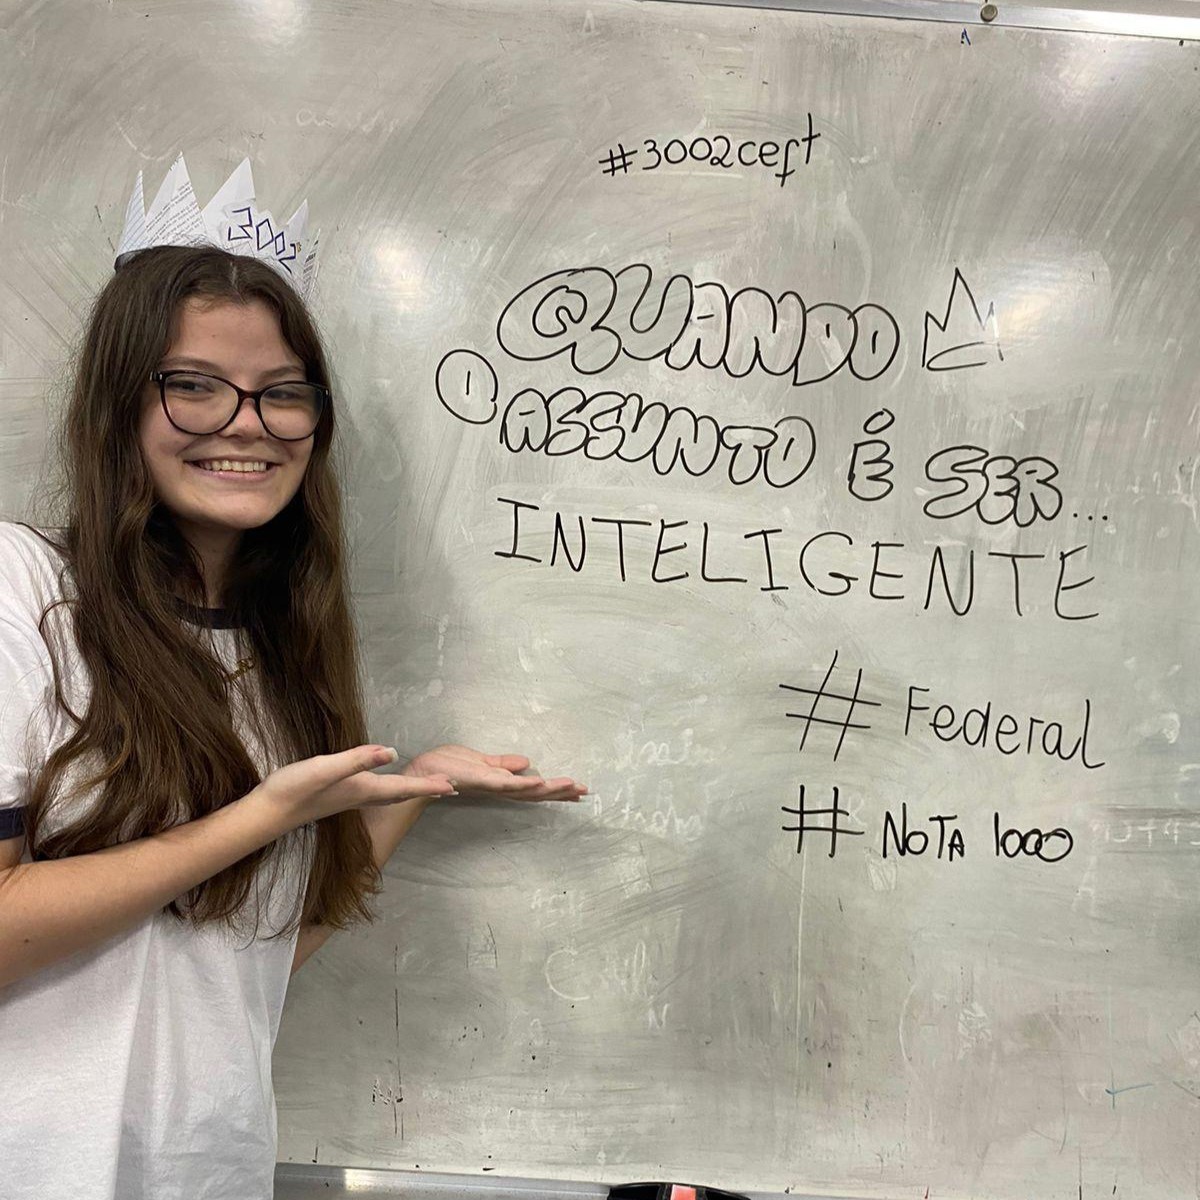 #3002ceft
3002
QUANDO
O ASSUNTO É SER...
INTELIGENTE
# Federal
# NOTA 1000